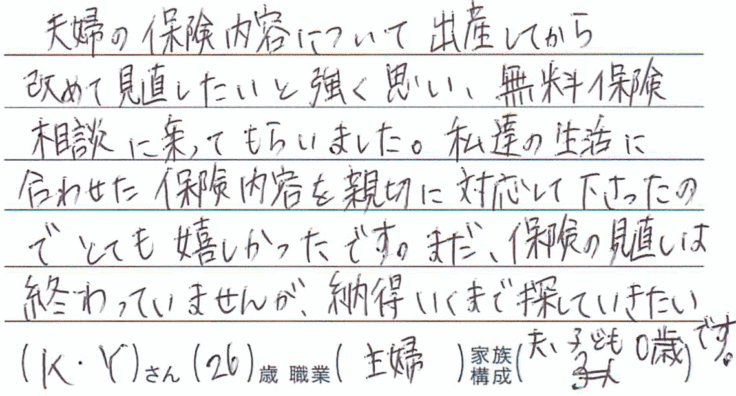 夫婦の保険内容について出産してから
改めて見直したいと強く思い、無料保険
相談に乗ってもらいました。私達の生活に
合わせた保険内容を親切に対応して下さったの
でとても嬉しかったです。まだ、保険の見直しは
終わっていませんが、納得いくまで探していきたい
です。
(K・Y)さん (26)歳 職業(主婦) 家族構成(夫、子ども0歳)